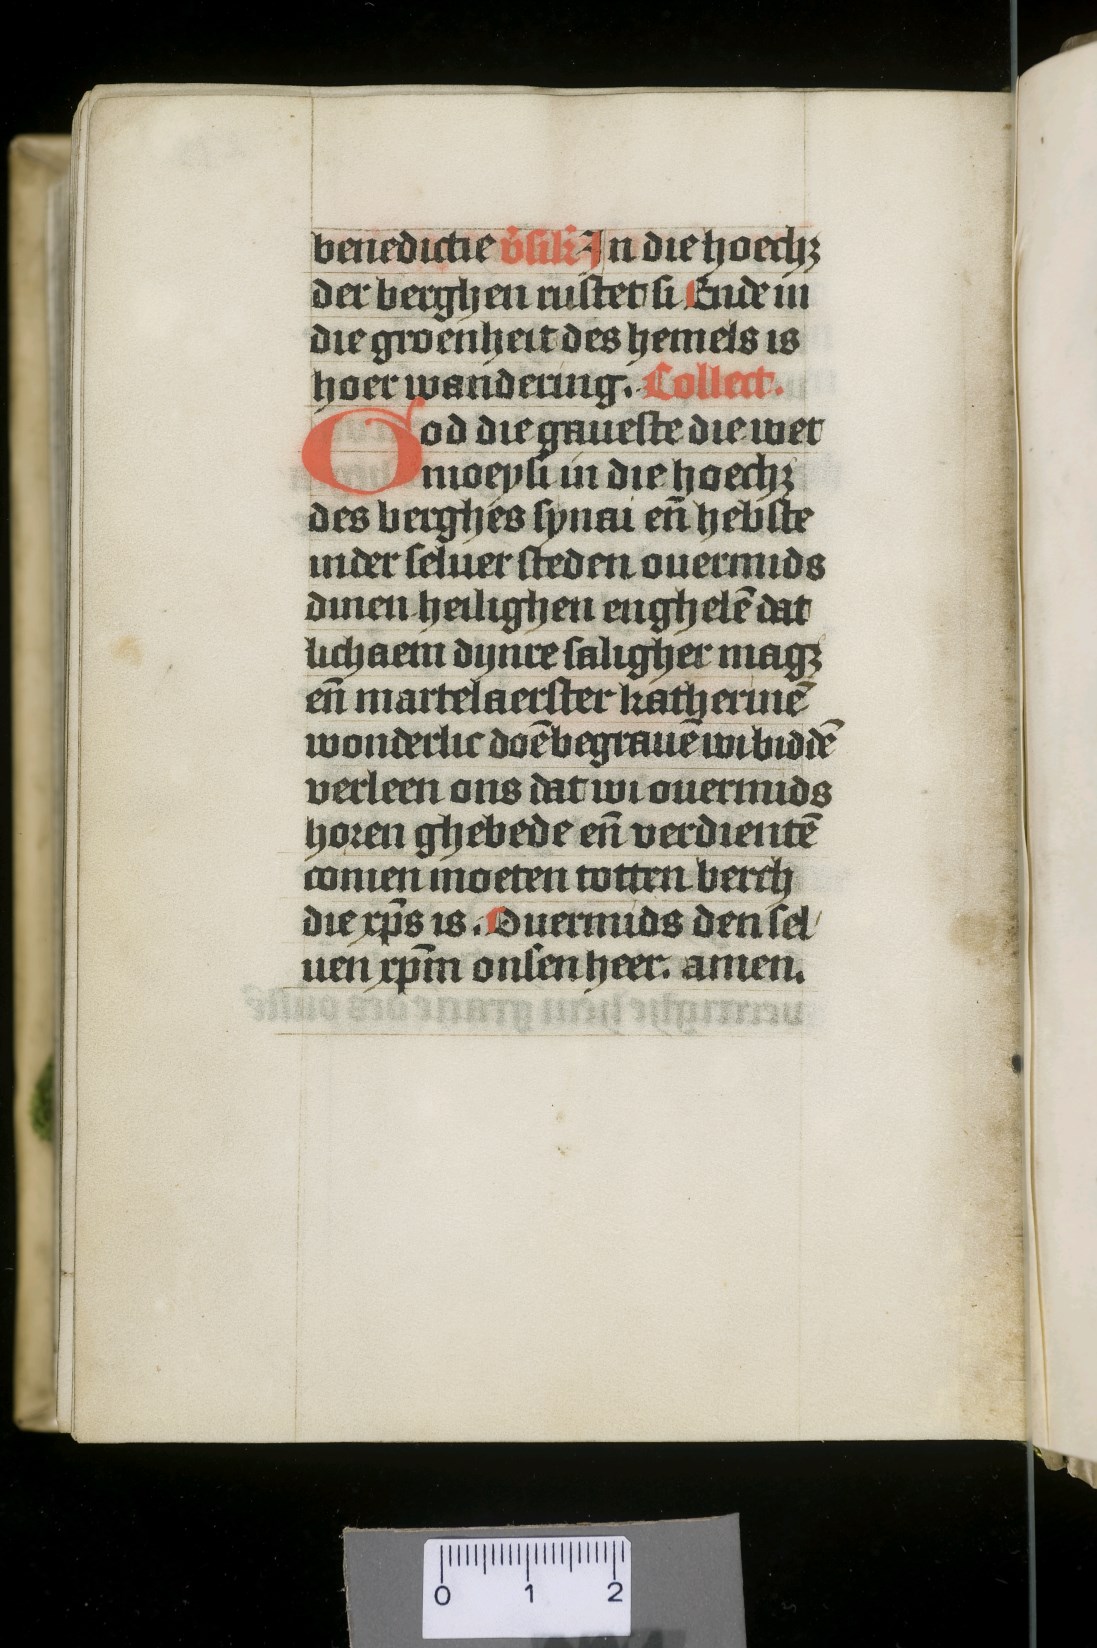 benedictie v̉sik̉ In die hoechꝫ
der berghen rustet si Ende in
die groenheit des hemels is
hoer wandering. Collect.
God die gaueste die wet
moeysi in die hoechꝫ
des berghes synai en̄ hebste
inder seluer steden ouermids
dinen heilighen enghelē dat
lichaem dijnre saligher magꝫ
en̄ martelaerster katherinē
wonderlic doē begrauē wi biddē
verleen ons dat wi ouermids
horen ghebede en̄ verdientē
comen moeten totten berch
die xp̄s is. Ouermids den sel
uen xp̄m onsen heer. amen.
0 1 2